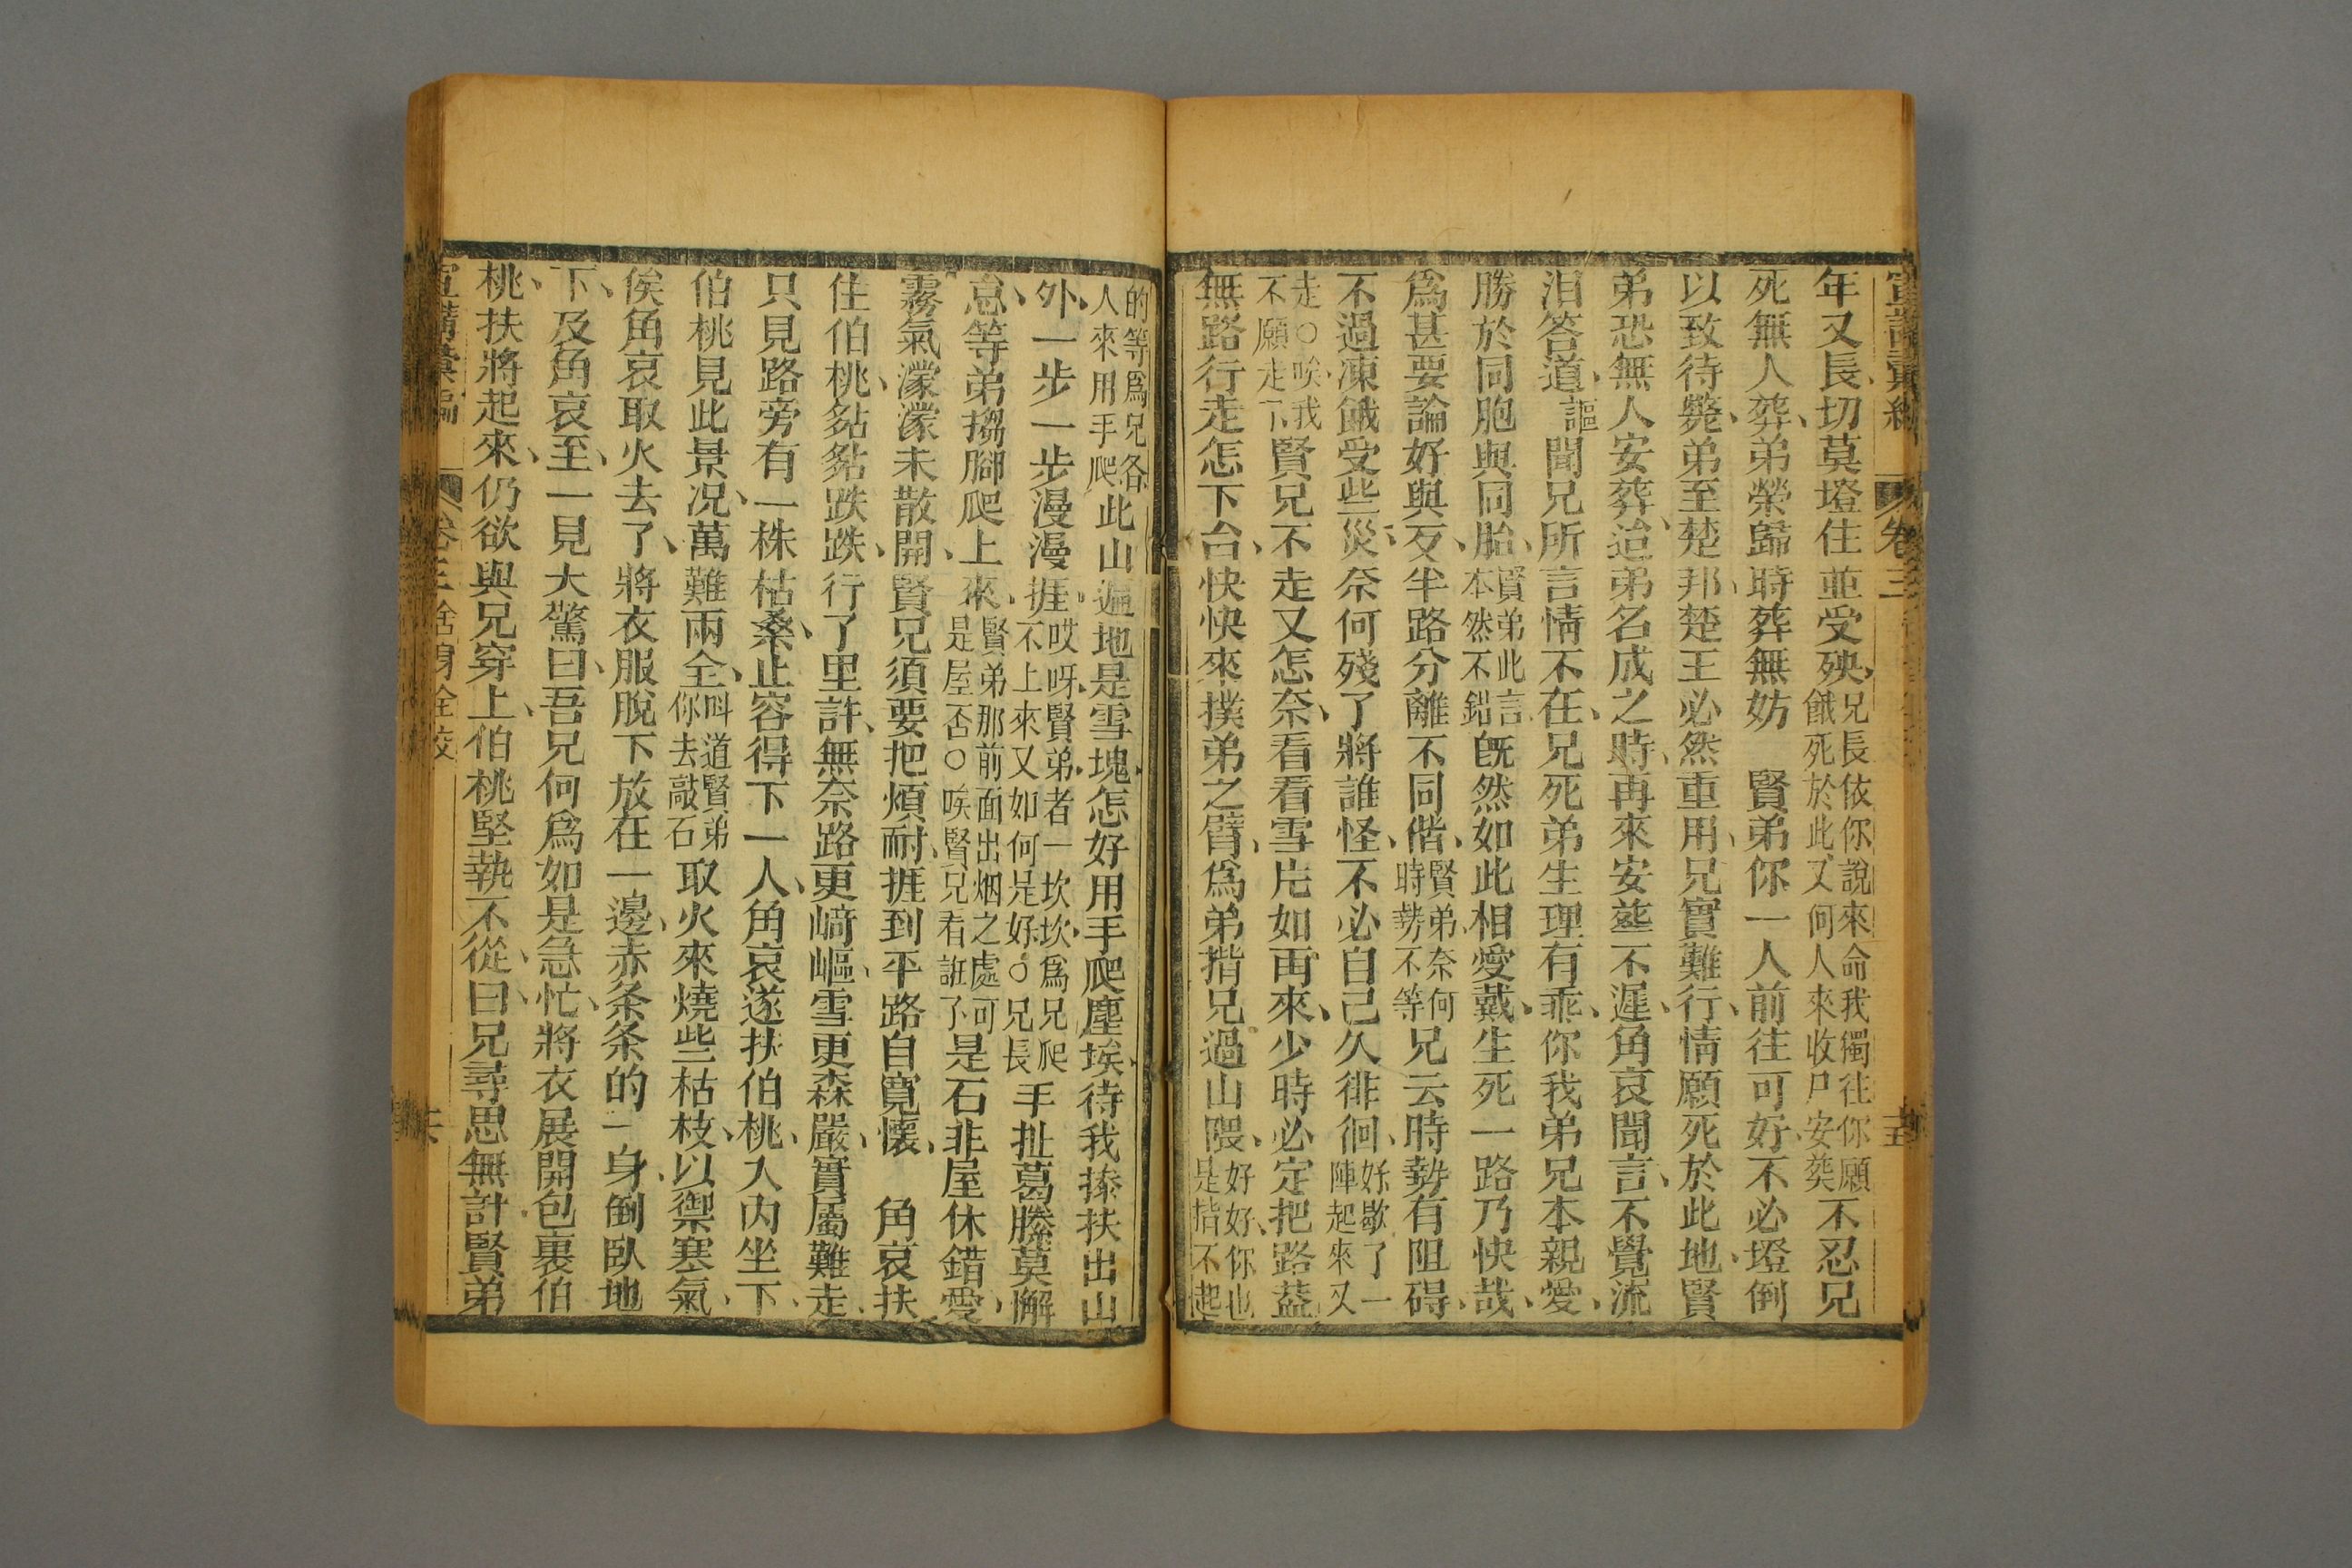 宣講彙編 卷三 十五
年又長切莫墱住並受殃兄長依你說來命我獨往你願餓死於此又何人來收尸安葬不忍兄
死無人葬弟榮歸時葬無妨 賢弟你一人前往可好不必墱倒
以致待斃弟至楚邦楚王必然重用兄實難行情願死於此地賢
弟恐無人安葬迨弟名成之時再來安葬不遲角哀聞言不覺流
泪答道謳聞兄所言情不在兄死弟生理有乖你我弟兄本親愛
勝於同胞與同胎賢弟此言本然不錯旣然如此相愛戴生死一路乃快哉
爲甚要論好與歹半路分離不同偕賢弟奈何時勢不等兄云時勢有阻碍
不過凍餓受些災奈何殘了將誰怪不必自己久徘徊好歇了一陣起來又
走○唉我不願走下賢兄不走又怎奈看看雪片如雨來少時必定把路蓋
無路行走怎下台快快來撲弟之臂爲弟揹兄過山隈好好你也是揹不起
的等爲兄各人來用手爬此山遍地是雪塊怎好用手爬塵埃待我搀扶出山
外一步一步漫漫捱哎呀賢弟者一坎坎爲兄爬不上來又如何是好○兄長手扯葛藤莫懈
怠等弟搊腳爬上來賢弟那前面出烟之處可是屋否○唉賢兄看誑了是石非屋休錯愛
霧氣濛濛未散開賢兄須要把煩耐捱到平路自寬懷 角哀扶
住伯桃䠓䠓跌跌行了里許無奈路更崎嶇雪更森嚴實屬難走
只見路旁有一株枯桑止容得下一人角哀遂扶伯桃入內坐下
伯桃見此景况萬難兩全呌道賢弟你去敲石取火來燒些枯枝以禦寒氣
俟角哀取火去了將衣服脫下放在一邊赤条条的一身倒臥地
下及角哀至一見大驚曰吾兄何爲如是急忙將衣展開包裹伯
桃扶將起來仍欲與兄穿上伯桃堅執不從曰兄尋思無計賢弟
宣講彙編 卷三 捨身全交